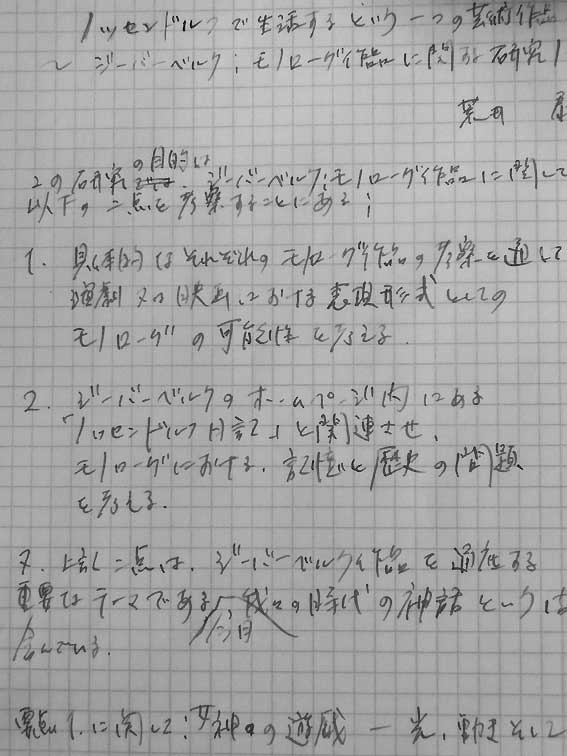 ノッセンドルフで生活するという一つの芸術作品
～ジーバーベルク；モノローグ作品に関する研究1
この研究の目的は、ジーバーベルク；モノローグ作品に関して
以下の二点を考察することにある；
1. 具体的なそれぞれのモノローグ作品の考察を通して
演劇又は映画における表現形式としての
モノローグの可能性を考える．
2. ジーバーベルクのホームページ内にある
「ノッセンドルフ日記」と関連させ、
モノローグにおける、記憶と歴史の問題
を考える．
又、上記二点は、ジーバーベルク作品を通底する
重要なテーマである、我々の時代の神話という
今日
含んでいる．
要点1.に関して；女神の遊戯 ー 光、動きそして